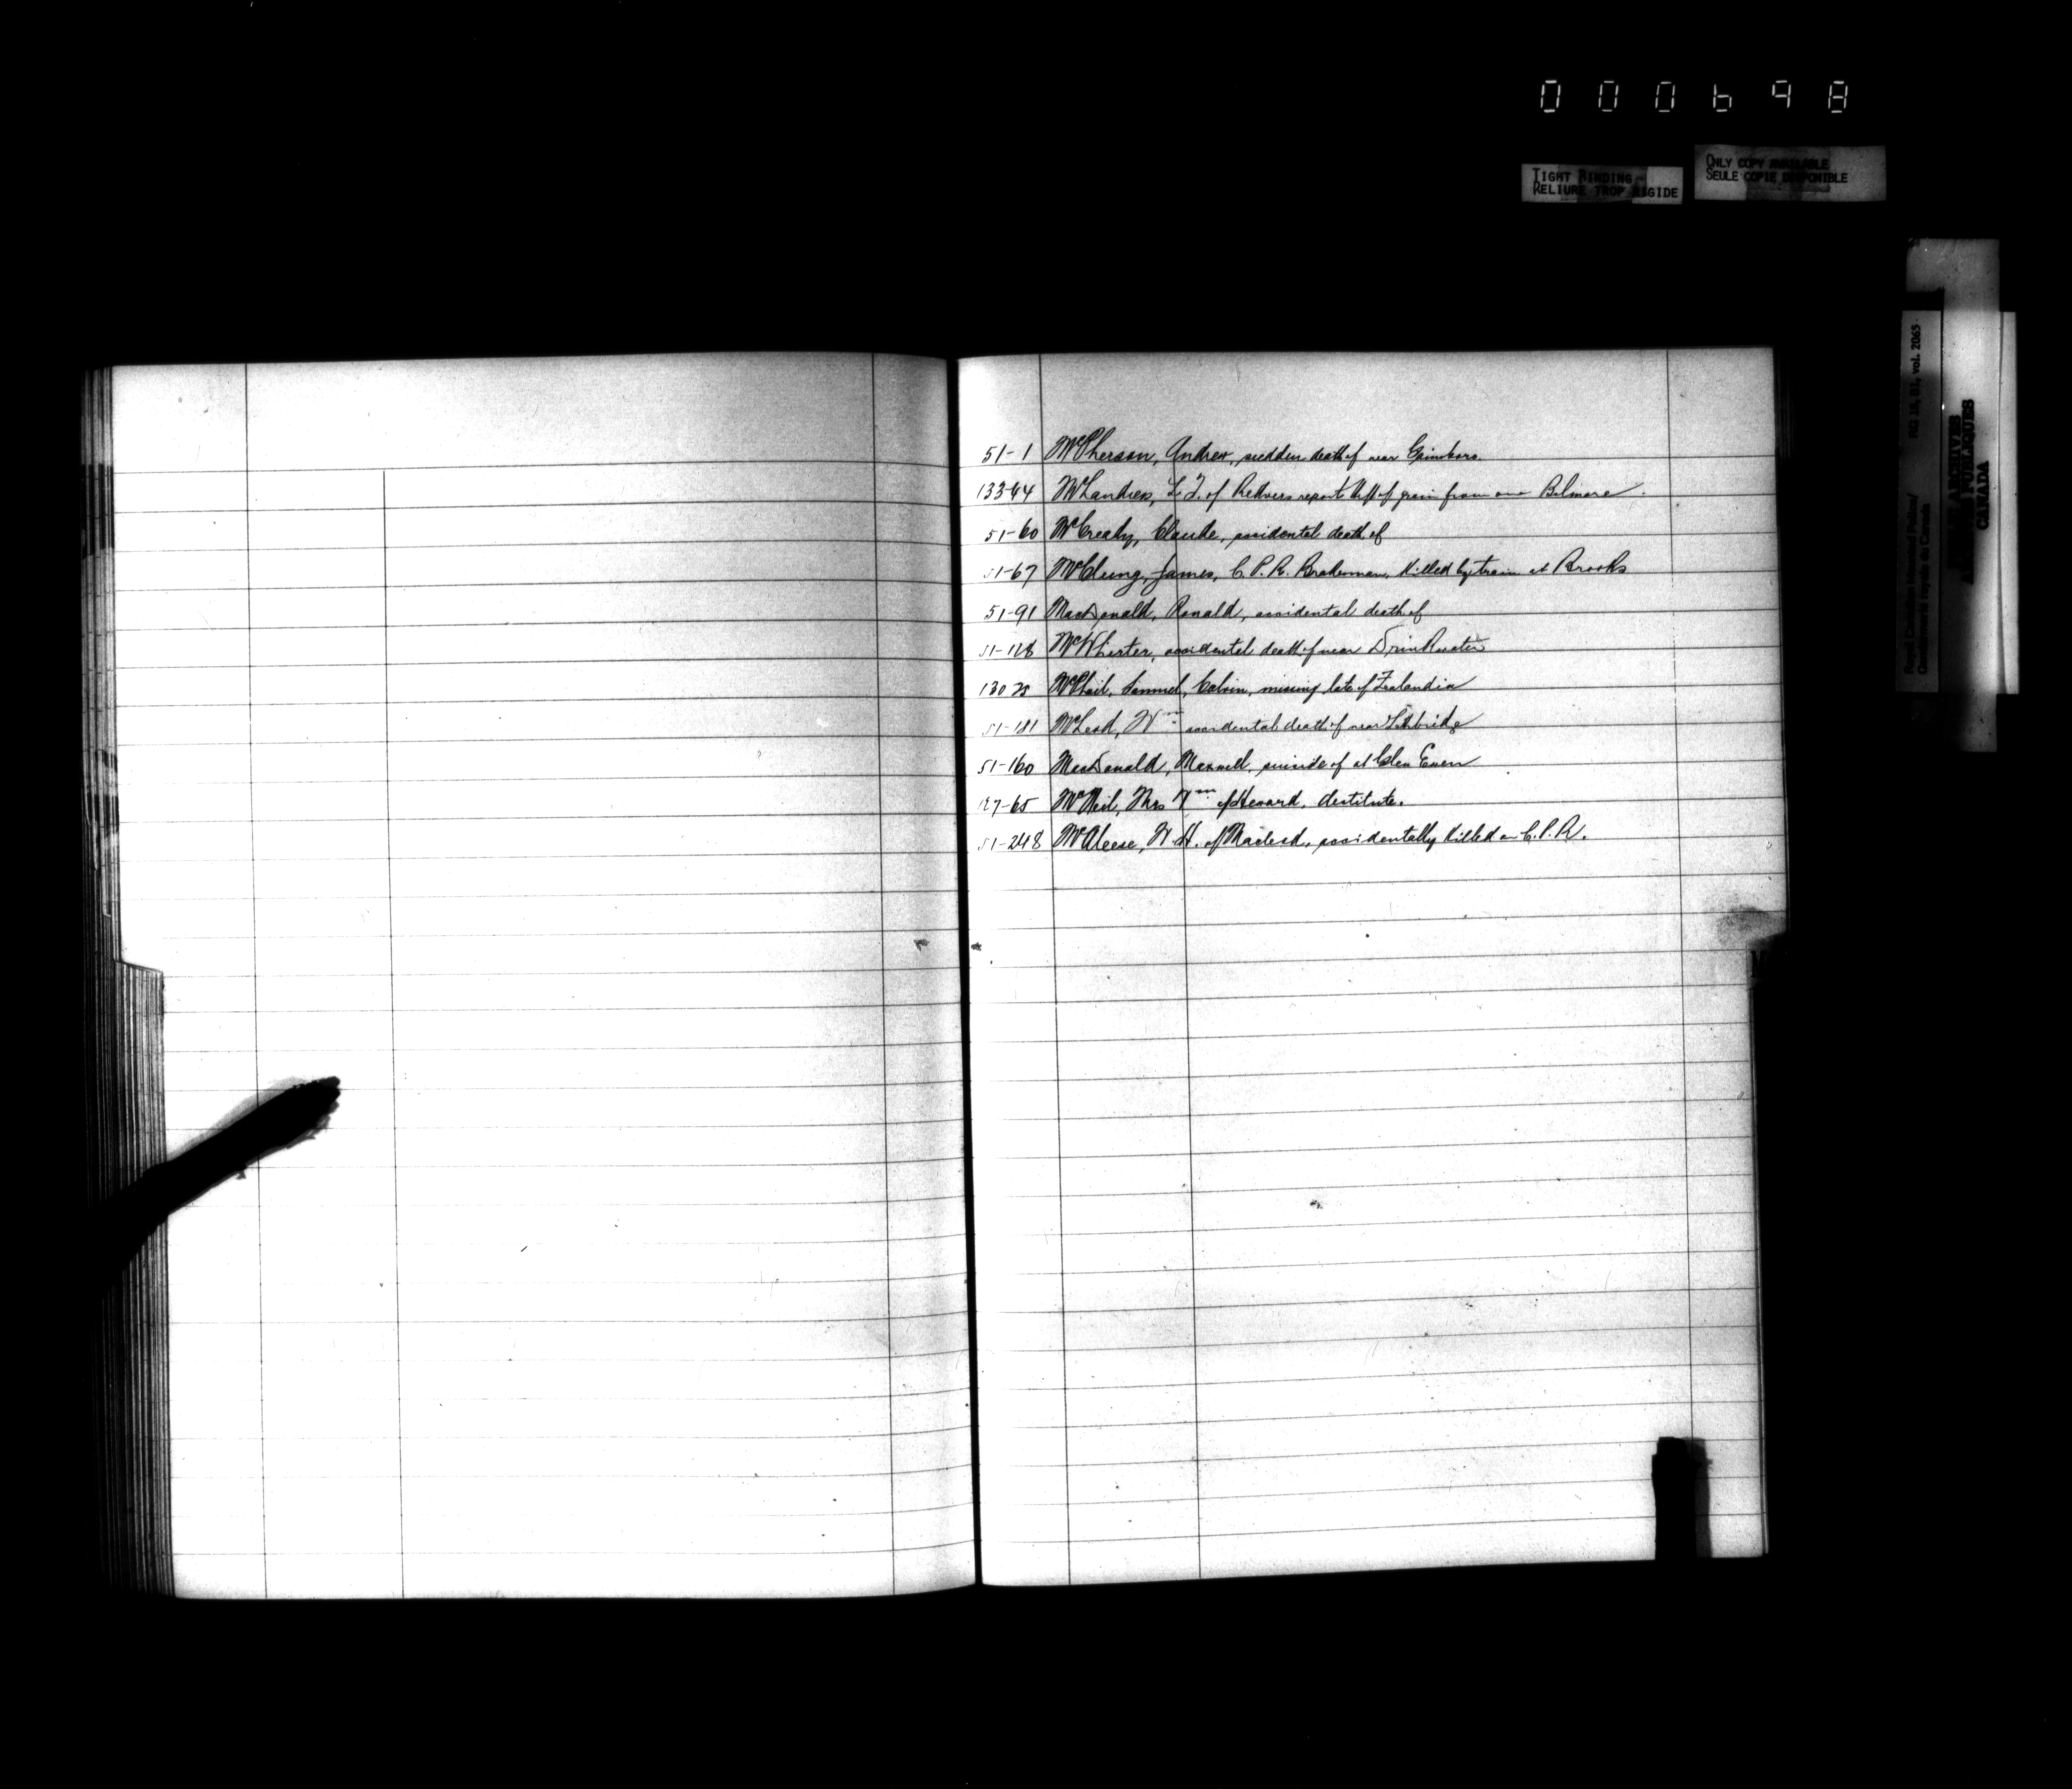 000698
TIGHT BINDING
RELIURE TROP RIGIDE
ONLY COPY AVAILABLE
SEULE COPIE DISPONIBLE
Royal Canadian Mounted Police/
Gendarmerie royale du Canada
RG 18, B1, vol. 2065
ARCHIVES
PUBLIQUES
CANADA
51-1 McPherson, Andrew, sudden death of near
133-44 McLandress, of Redvers report theft of grain from one Belmore.
51-60 McCready, Claude, accidental death of
51-67 McClung, James, C.P.R. Brakeman, killed by train at Brooks
51-91 MacDonald, Ronald, accidental death of
51-128 McWhirter, accidental death of near Drinkwater
130-25 McPhail, Samuel, Calvin, missing late of Zealandia
51-181 McLeod, Wm accidental death of near Lethbridge
51-160 MacDonald, Maxwell, suicide of at Glen Ewen
127-65 McNeil, Mrs Wm of Howard, destitute.
51-248 McAleese, W.H. of Macleod, accidentally killed on C.P.R.